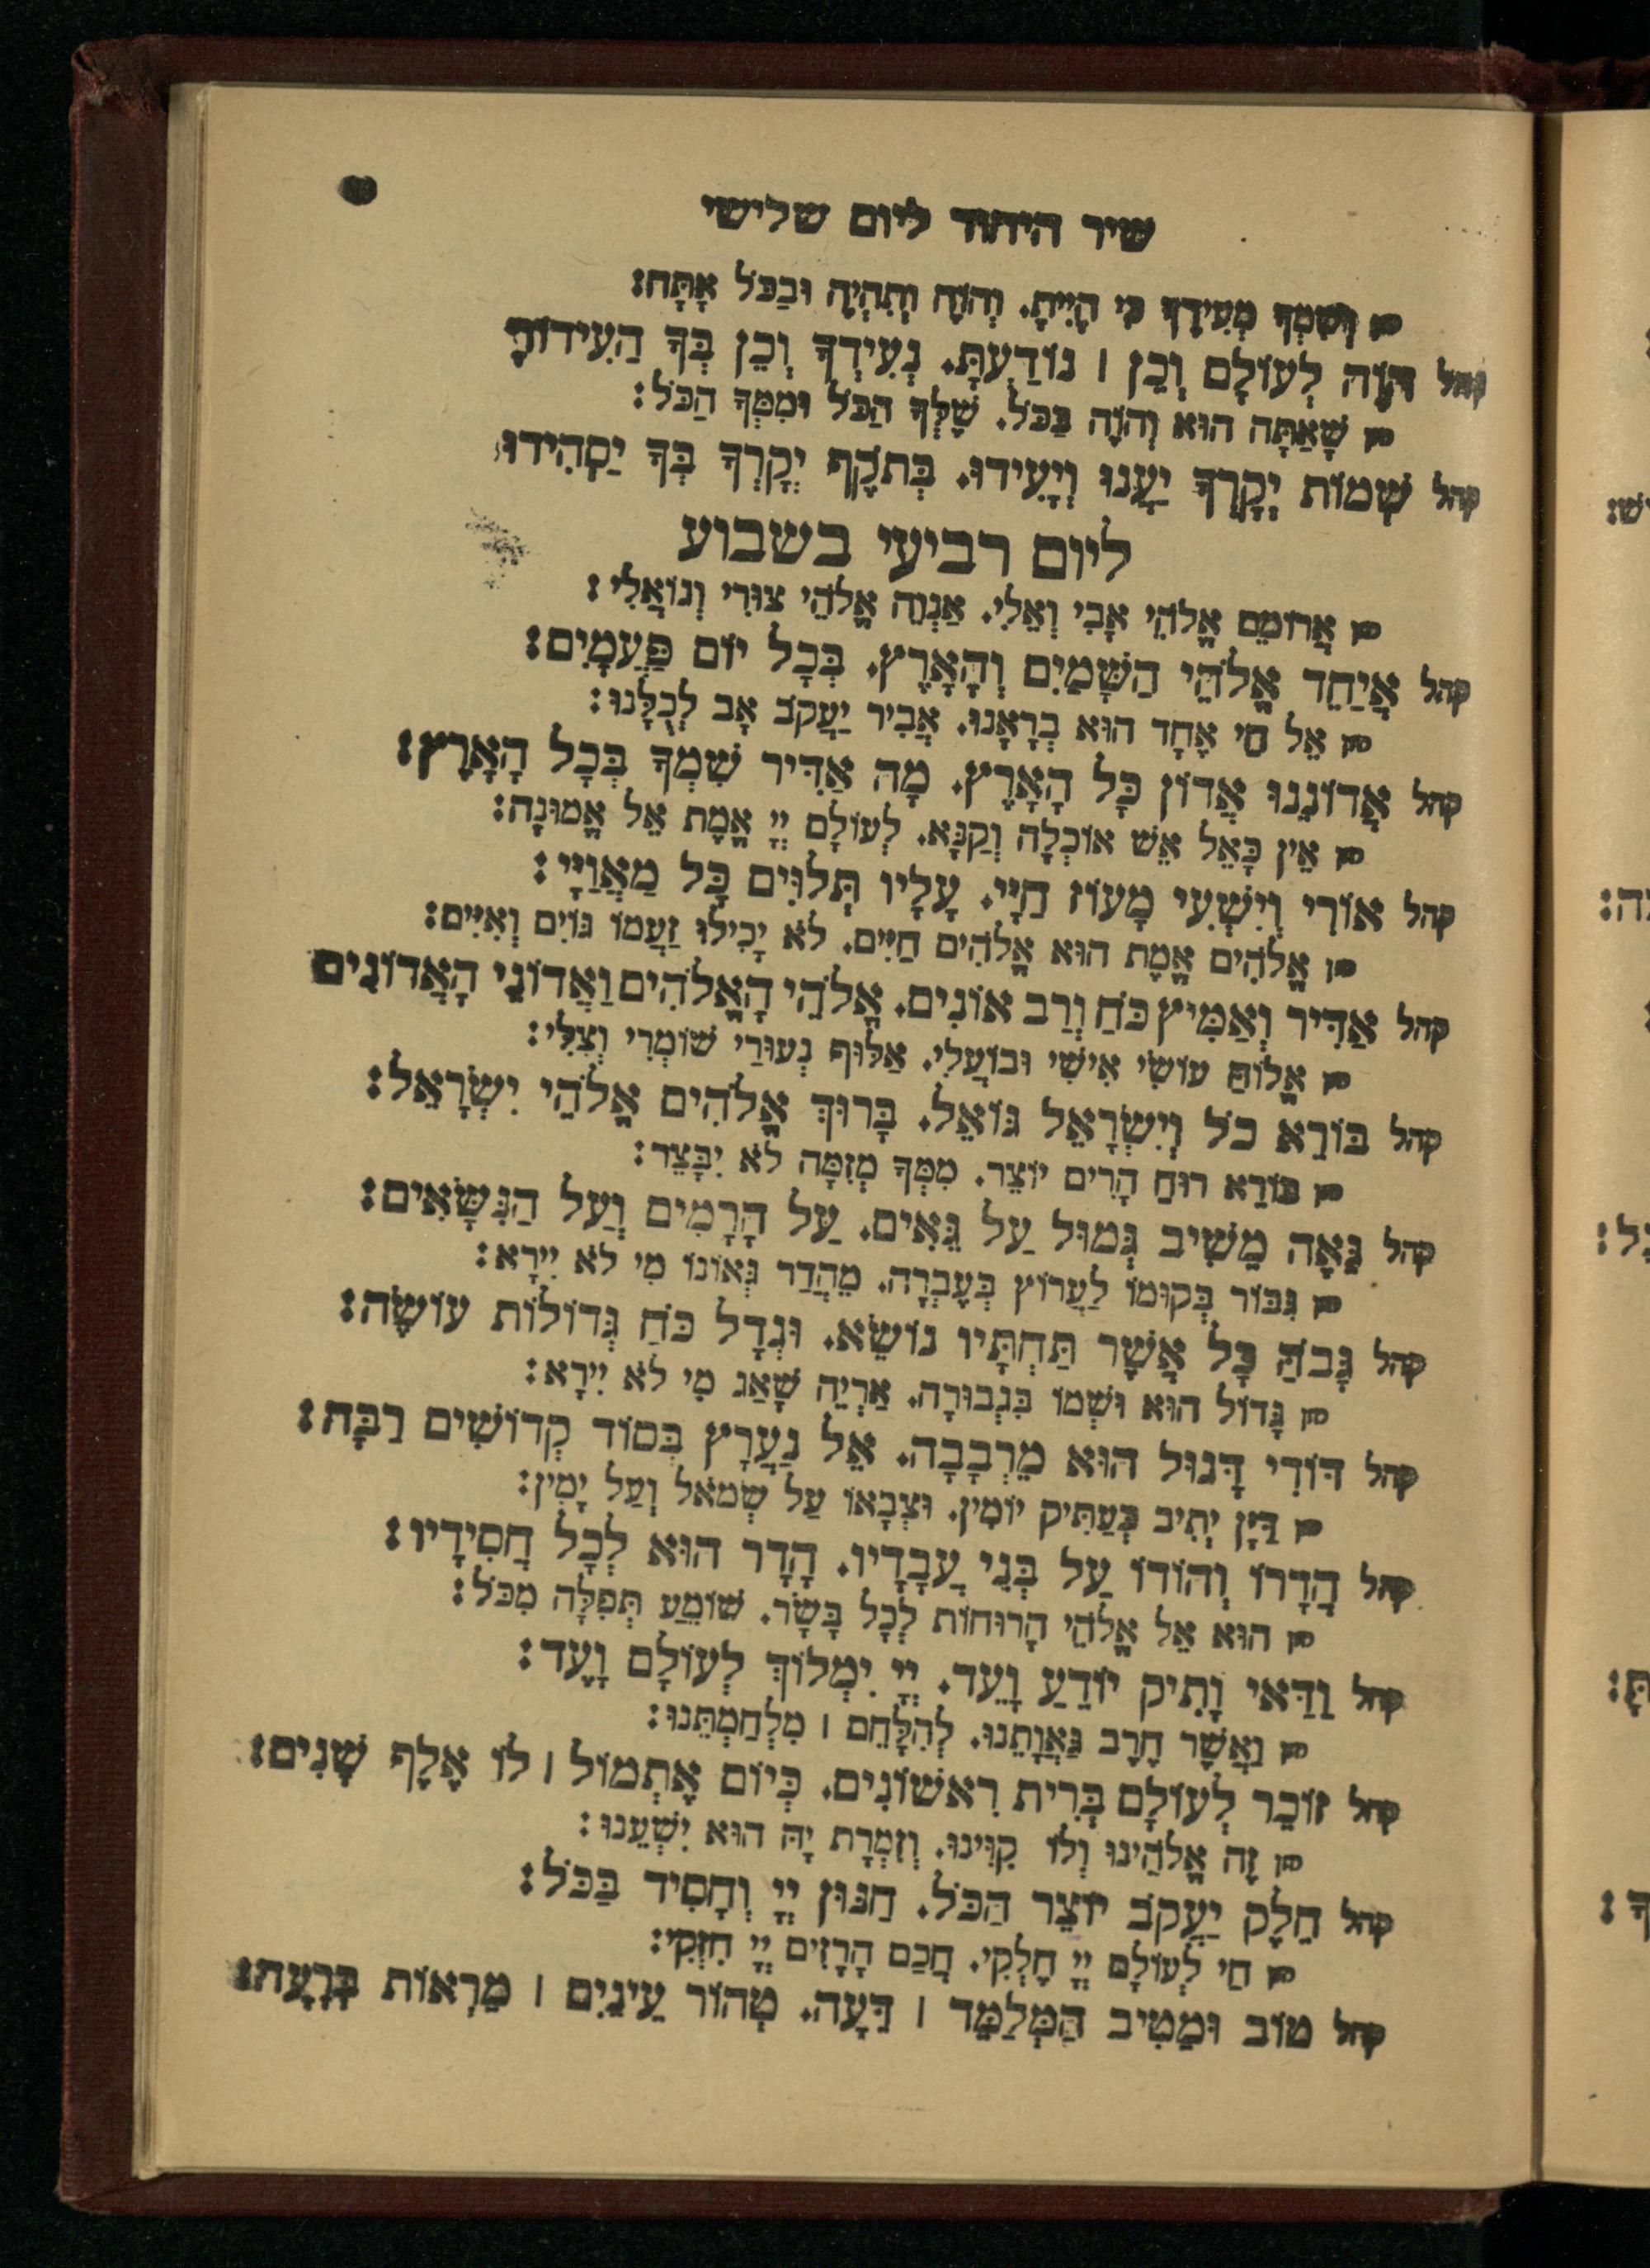 שיר היחוד ליום שלישי
חזן וְשִׁמְךָ מְעִידְךָ כִּי הָיִיתָ. וְהֹוֶה וְתִהְיֶה וּבַכֹּל אָתָּה:
קהל הֹוֶה לְעוֹלָם וְכֵן ׀ נוֹדַעְתָּ. נְעִידְךָ וְכֵן בְּךָ הַעִידוֹתָ
חזן שֶׁאַתָּה הוּא וְהֹוֶה בַּכֹּל. שֶׁלְּךָ הַכֹּל וּמִמְּךָ הַכֹּל:
קהל שְׁמוֹת יְקָרְךָ יַעֲנוּ וְיָעִידוּ. בְּתֹקֶף יְקָרְךָ בְּךָ יַסְהִידוּ
ליום רביעי בשבוע
חזן אֲרוֹמֵם אֱלֹהֵי אָבִי וְאֵלִי. אַנְוֶה אֱלֹהֵי צוּרִי וְגוֹאֲלִי:
קהל אֲיַחֵד אֱלֹהֵי הַשָּׁמַיִם וְהָאָרֶץ. בְּכָל יוֹם פַּעֲמָיִם:
חזן אֵל חַי אֶחָד הוּא בְרָאָנוּ. אֲבִיר יַעֲקֹב אָב לְכֻלָּנוּ:
קהל אֲדוֹנֵנוּ אֲדוֹן כָּל הָאָרֶץ. מָה אַדִּיר שִׁמְךָ בְּכָל הָאָרֶץ:
חזן אֵין כָּאֵל אֵשׁ אוֹכְלָה וְקַנָּא. לְעוֹלָם יְיָ אֱמֶת אֵל אֱמוּנָה:
קהל אוֹרִי וְיִשְׁעִי מָעוֹז חַיָּי. עָלָיו תְּלוּיִם כָּל מַאֲוַיָּי:
חזן אֱלֹהִים אֱמֶת הוּא אֱלֹהִים חַיִּים. לֹא יָכִילוּ זַעֲמוֹ גּוֹיִם וְאִיִּים:
קהל אַדִּיר וְאַמִּיץ כֹּחַ וְרַב אוֹנִים. אֱלֹהֵי הָאֱלֹהִים וַאֲדוֹנֵי הָאֲדוֹנִים
חזן אֱלוֹהַּ עוֹשִׂי אִישִׁי וּבוֹעֲלִי. אַלּוּף נְעוּרַי שׁוֹמְרִי וְצִלִּי:
קהל בּוֹרֵא כֹל וְיִשְׂרָאֵל גּוֹאֵל. בָּרוּךְ אֱלֹהִים אֱלֹהֵי יִשְׂרָאֵל:
חזן בּוֹרֵא רוּחַ הָרִים יוֹצֵר. מִמְּךָ מְזִמָּה לֹא יִבָּצֵר:
קהל גֵּאֶה מֵשִׁיב גְּמוּל עַל גֵּאִים. עַל הָרָמִים וְעַל הַנִּשָּׂאִים:
חזן גִּבּוֹר בְּקוּמוֹ לַעֲרוֹץ בְּעֶבְרָה. מֵהֲדַר גְּאוֹנוֹ מִי לֹא יִירָא:
קהל גָּבֹהַּ כָּל אֲשֶׁר תַּחְתָּיו נוֹשֵׂא. וּגְדָל כֹּחַ גְּדוֹלוֹת עוֹשֶׂה:
חזן גָּדוֹל הוּא וּשְׁמוֹ בִּגְבוּרָה. אַרְיֵה שָׁאַג מִי לֹא יִירָא:
קהל דּוֹדִי דָּגוּל הוּא מֵרְבָבָה. אֵל נַעֲרָץ בְּסוֹד קְדוֹשִׁים רַבָּה:
חזן דַּיָּן יְתִיב כְּעַתִּיק יוֹמִין. וּצְבָאוֹ עַל שְׂמֹאל וְעַל יָמִין:
קהל הֲדָרוֹ וְהוֹדוֹ עַל בְּנֵי עֲבָדָיו. הָדָר הוּא לְכָל חֲסִידָיו:
חזן הוּא אֵל אֱלֹהֵי הָרוּחוֹת לְכָל בָּשָׂר. שׁוֹמֵעַ תְּפִלָּה מִכֹּל:
קהל וַדַּאי וָתִיק יוֹדֵעַ וָעֵד. יְיָ יִמְלוֹךְ לְעוֹלָם וָעֶד:
חזן וַאֲשֶׁר חֶרֶב גַּאֲוָתֵנוּ. לְהִלָּחֵם ׀ מִלְחַמְתֵּנוּ:
קהל זוֹכֵר לְעוֹלָם בְּרִית רִאשׁוֹנִים. כְּיוֹם אֶתְמוֹל ׀ לוֹ אֶלֶף שָׁנִים:
חזן זֶה אֱלֹהֵינוּ וְלוֹ קִוִּינוּ. וְזִמְרָת יָהּ הוּא יִשְׁעֵנוּ:
קהל חֵלֶק יַעֲקֹב יוֹצֵר הַכֹּל. חַנּוּן יְיָ וְחָסִיד בַּכֹּל:
חזן חַי לְעוֹלָם יְיָ חֶלְקִי. חֲכַם הָרָזִים יְיָ חִזְקִי:
קהל טוֹב וּמֵטִיב הַמְּלַמֵּד ׀ דֵּעָה. טְהוֹר עֵינַיִם ׀ מֵרְאוֹת בְּרָעָה: